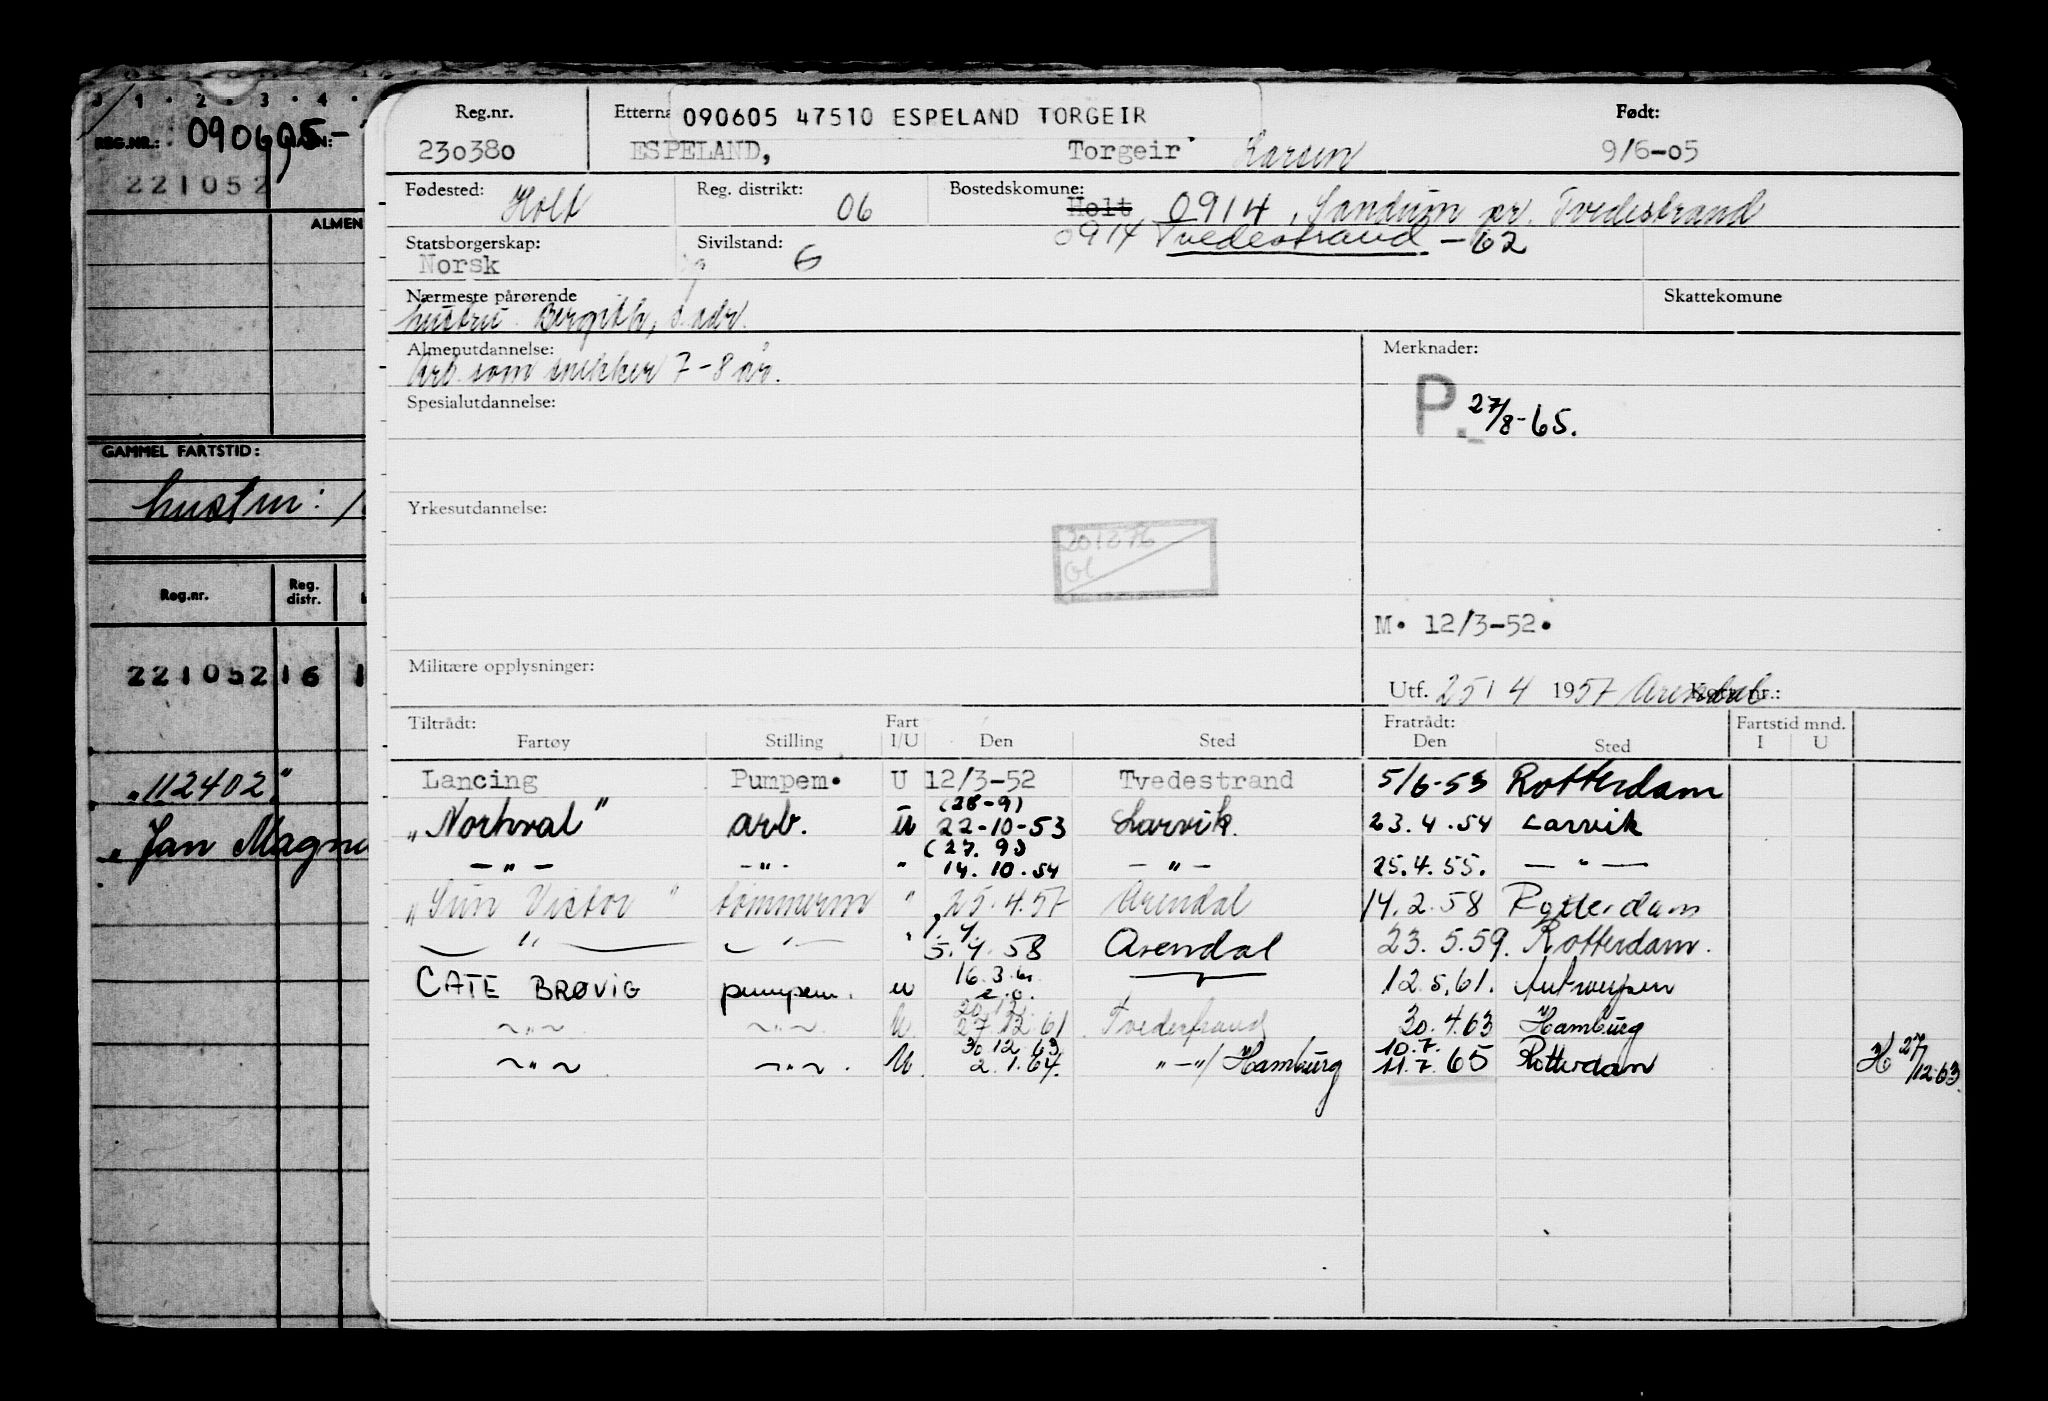 1 · 2 · 3 · 4 ·
REG.NR.: 090605-
221052
ALMEN
GAMMEL FARTSTID:
hustru:
Reg.nr. Reg. distr.
221052 16 1
"112402"
"Jan Magnu
Reg.nr. Etterna 090605 47510 ESPELAND TORGEIR Født:
230380 ESPELAND, Torgeir Larsen 9/6-05
Fødested: Holt Reg. distrikt: 06 Bostedskomune: Holt 0914, Sandum pr. Tvedestrand
Statsborgerskap: Norsk Sivilstand: G 0914 Tvedestrand -62
Nærmeste pårørende Skattekomune
hustru Bergith, s. adr.
Almenutdannelse: Merknader:
Arb. som snekker 7-8 år.
Spesialutdannelse: P. 27/8-65.
Yrkesutdannelse:
201076
Gl
M. 12/3-52.
Militære opplysninger:
Utf. 25/4 1957 Arendal Kort nr.:
Tiltrådt: Fart Fratrådt: Fartstid mnd.
Fartøy Stilling I/U Den Sted Den Sted I U
Lancing Pumpem. U 12/3-52 Tvedestrand 5/6-53 Rotterdam
(28-9)
"Norhval" arb. u 22-10-53 Larvik. 23.4.54 Larvik
(27.9)
— " — - " - " 14.10.54 — " — 25.4.55. — " —
"Sun Victor" tømmerm " 25.4.57 Arendal 14.2.58 Rotterdam
1.4.
— " — — " — " 5.4.58 Arendal 23.5.59. Rotterdam.
16.3.
CATE BRØVIG pumpem. u 12.5.61. Antwerpen
20.12.
~ " ~ ~ " ~ U. 27.12.61 Tvedestrand 30.4.63 Hamburg
30.12.63 10.7.
~ " ~ ~ " ~ U. 2.1.64. " — "/Hamburg 11.7.65 Rotterdam H 27/12-63.